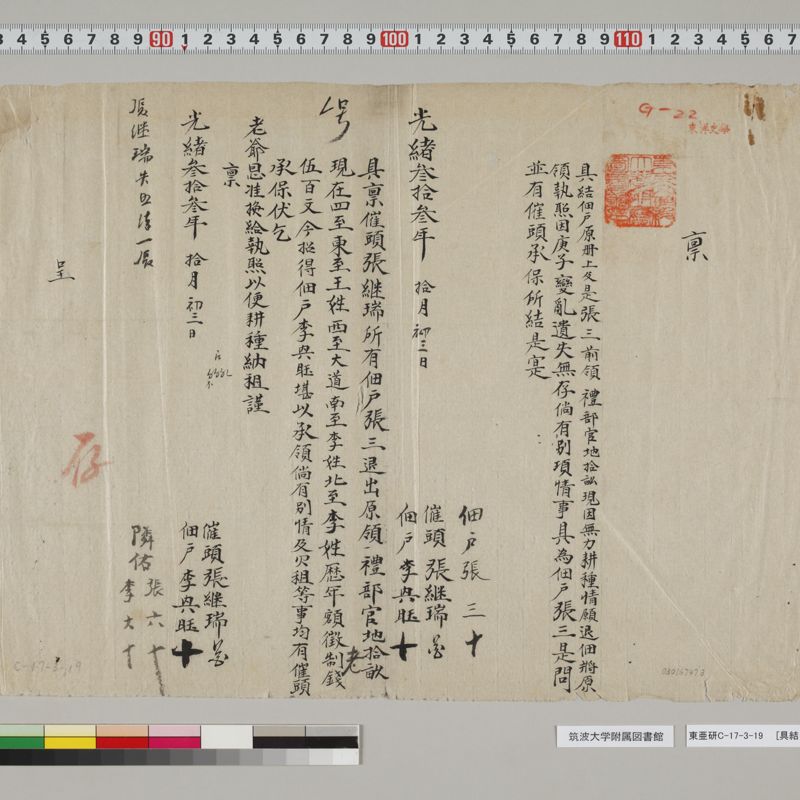 G-22
稟
具結佃戶原冊上名是張三前領 禮部官地拾畝現因無力耕種情願退佃將原
領執照因庚子變亂遺失無存倘有別項情事具為佃戶張三是問
並有催頭承保所結是寔
佃戶張三十
催頭張継瑞
佃戶李興旺十
光緒叁拾叁年 拾月 初三日
具稟催頭張継瑞所有佃戶張三退出原領 禮部官地拾畝
現在四至東至王姓西至大道南至李姓北至李姓歷年額徵制錢
伍百文今招得佃戶李興旺堪以承領倘有別情及欠租等事均有催頭
承保伏乞
老爺恩准換給執照以便耕種納租謹
稟
光緒叁拾叁年 拾月 初三日
催頭張継瑞
佃戶李興旺十
隣佑張六十
李大十
張继瑞
一張
呈
存
C-17-3-19
筑波大学附属図書館
東亜研C-17-3-19 [具結
3 4 5 6 7 8 9 90 1 2 3 4 5 6 7 8 9 100 1 2 3 4 5 6 7 8 9 110 1 2 3 4 5 6 7